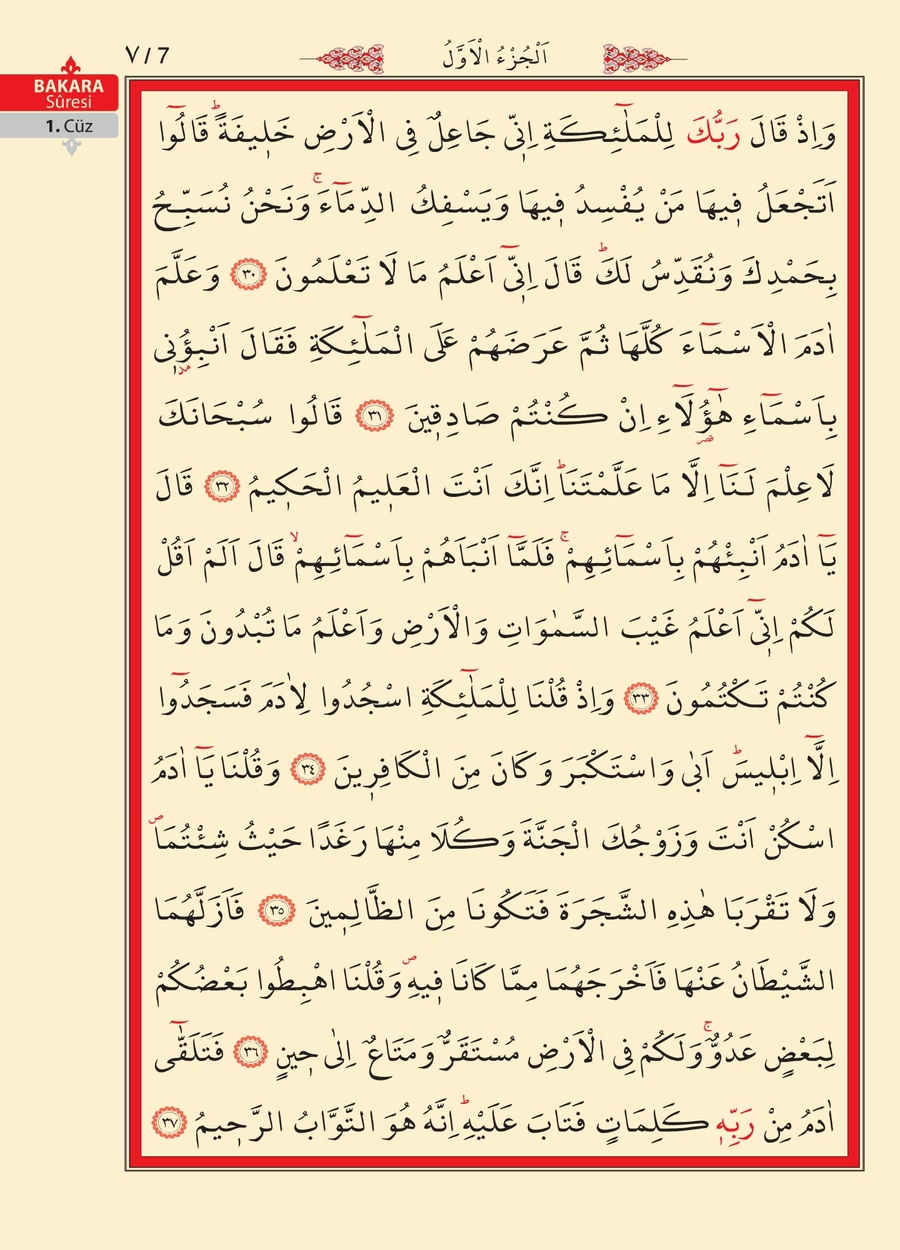 ٧ / 7
اَلْجُزْءُ الْاَوَّلُ
BAKARA
Sûresi
1. Cüz
وَاِذْ قَالَ رَبُّكَ لِلْمَلٰٓئِكَةِ اِنّ۪ي جَاعِلٌ فِي الْاَرْضِ خَل۪يفَةًۜ قَالُٓوا
اَتَجْعَلُ ف۪يهَا مَنْ يُفْسِدُ ف۪يهَا وَيَسْفِكُ الدِّمَٓاءَۚ وَنَحْنُ نُسَبِّحُ
بِحَمْدِكَ وَنُقَدِّسُ لَكَۜ قَالَ اِنّ۪ٓي اَعْلَمُ مَا لَا تَعْلَمُونَ ﴿٣٠﴾ وَعَلَّمَ
اٰدَمَ الْاَسْمَٓاءَ كُلَّهَا ثُمَّ عَرَضَهُمْ عَلَى الْمَلٰٓئِكَةِ فَقَالَ اَنْبِؤُ۫ن۪ي
بِاَسْمَٓاءِ هٰٓؤُ۬لَٓاءِ اِنْ كُنْتُمْ صَادِق۪ينَ ﴿٣١﴾ قَالُوا سُبْحَانَكَ
لَا عِلْمَ لَنَٓا اِلَّا مَا عَلَّمْتَنَاۜ اِنَّكَ اَنْتَ الْعَل۪يمُ الْحَك۪يمُ ﴿٣٢﴾ قَالَ
يَٓا اٰدَمُ اَنْبِئْهُمْ بِاَسْمَٓائِهِمْۚ فَلَمَّٓا اَنْبَاَهُمْ بِاَسْمَٓائِهِمْۙ قَالَ اَلَمْ اَقُلْ
لَكُمْ اِنّ۪ٓي اَعْلَمُ غَيْبَ السَّمٰوَاتِ وَالْاَرْضِ وَاَعْلَمُ مَا تُبْدُونَ وَمَا
كُنْتُمْ تَكْتُمُونَ ﴿٣٣﴾ وَاِذْ قُلْنَا لِلْمَلٰٓئِكَةِ اسْجُدُوا لِاٰدَمَ فَسَجَدُٓوا
اِلَّٓا اِبْل۪يسَۜ اَبٰى وَاسْتَكْبَرَ وَكَانَ مِنَ الْكَافِر۪ينَ ﴿٣٤﴾ وَقُلْنَا يَٓا اٰدَمُ
اسْكُنْ اَنْتَ وَزَوْجُكَ الْجَنَّةَ وَكُلَا مِنْهَا رَغَدًا حَيْثُ شِئْتُمَاۖ
وَلَا تَقْرَبَا هٰذِهِ الشَّجَرَةَ فَتَكُونَا مِنَ الظَّالِم۪ينَ ﴿٣٥﴾ فَاَزَلَّهُمَا
الشَّيْطَانُ عَنْهَا فَاَخْرَجَهُمَا مِمَّا كَانَا ف۪يهِۖ وَقُلْنَا اهْبِطُوا بَعْضُكُمْ
لِبَعْضٍ عَدُوٌّۚ وَلَكُمْ فِي الْاَرْضِ مُسْتَقَرٌّ وَمَتَاعٌ اِلٰى ح۪ينٍ ﴿٣٦﴾ فَتَلَقّٰٓى
اٰدَمُ مِنْ رَبِّه۪ كَلِمَاتٍ فَتَابَ عَلَيْهِۜ اِنَّهُ هُوَ التَّوَّابُ الرَّح۪يمُ ﴿٣٧﴾